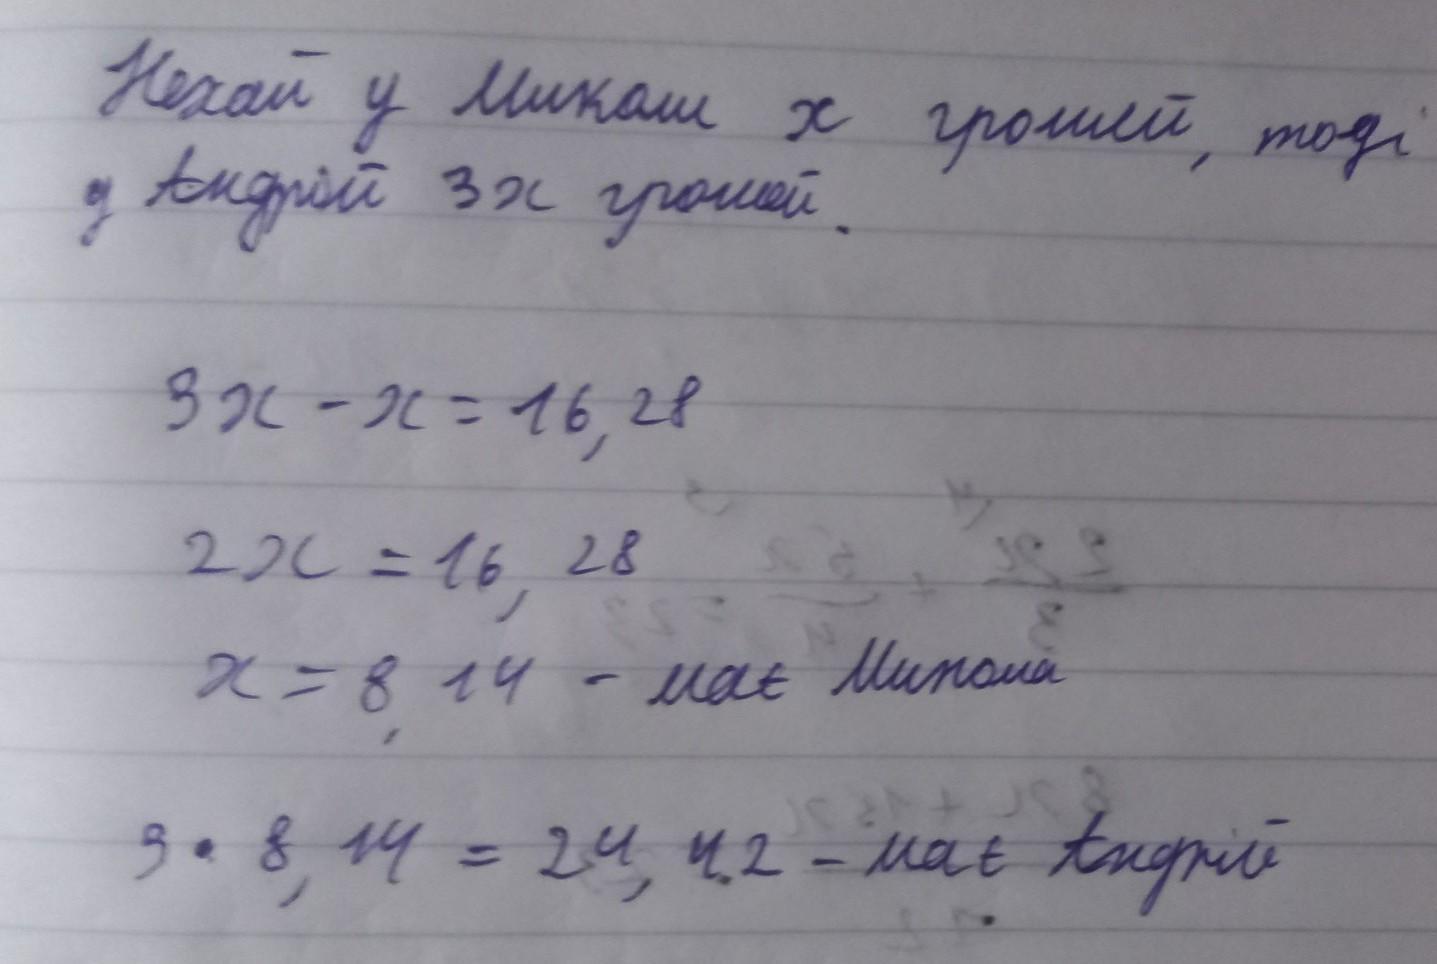 Нехай у Миколи x грошей, тоді
у Андрій 3x грошей.
3x - x = 16,28
2x = 16,28
x = 8,14 - має Микола
3 • 8,14 = 24,42 - має Андрій